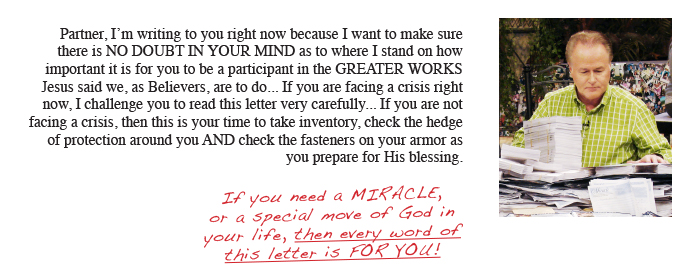 Partner, I'm writing to you right now because I want to make sure
there is NO DOUBT IN YOUR MIND as to where I stand on how
important it is for you to be a participant in the GREATER WORKS
Jesus said we, as Believers, are to do... If you are facing a crisis right
now, I challenge you to read this letter very carefully... If you are not
facing a crisis, then this is your time to take inventory, check the hedge
of protection around you AND check the fasteners on your armor as
you prepare for His blessing.
If you need a MIRACLE,
or a special move of God in
your life, then every word of
this letter is FOR YOU!